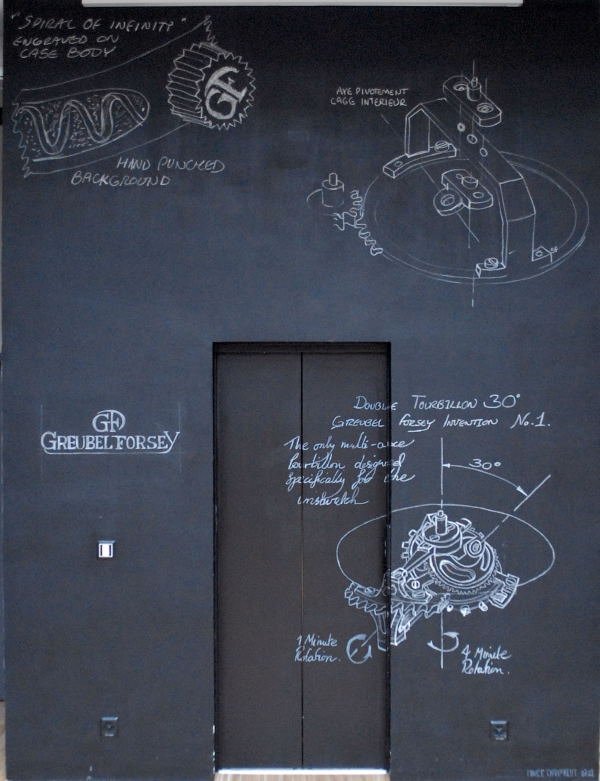 "SPIRAL OF INFINITY"
ENGRAVED ON
CASE BODY
GF
HAND PUNCHED
BACKGROUND
AXE PIVOTEMENT
CAGE INTERIEUR
GF
GREUBEL FORSEY
DOUBLE TOURBILLON 30°
GREUBEL FORSEY INVENTION No.1.
The only multi-axe
tourbillon designed
specifically for the
wristwatch
30°
1 Minute
Rotation.
4 Minute
Rotation.